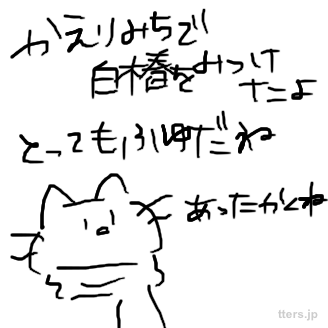 かえりみちで
白椿をみつけ
たよ
とっても だね
あったかくね
tters.jp